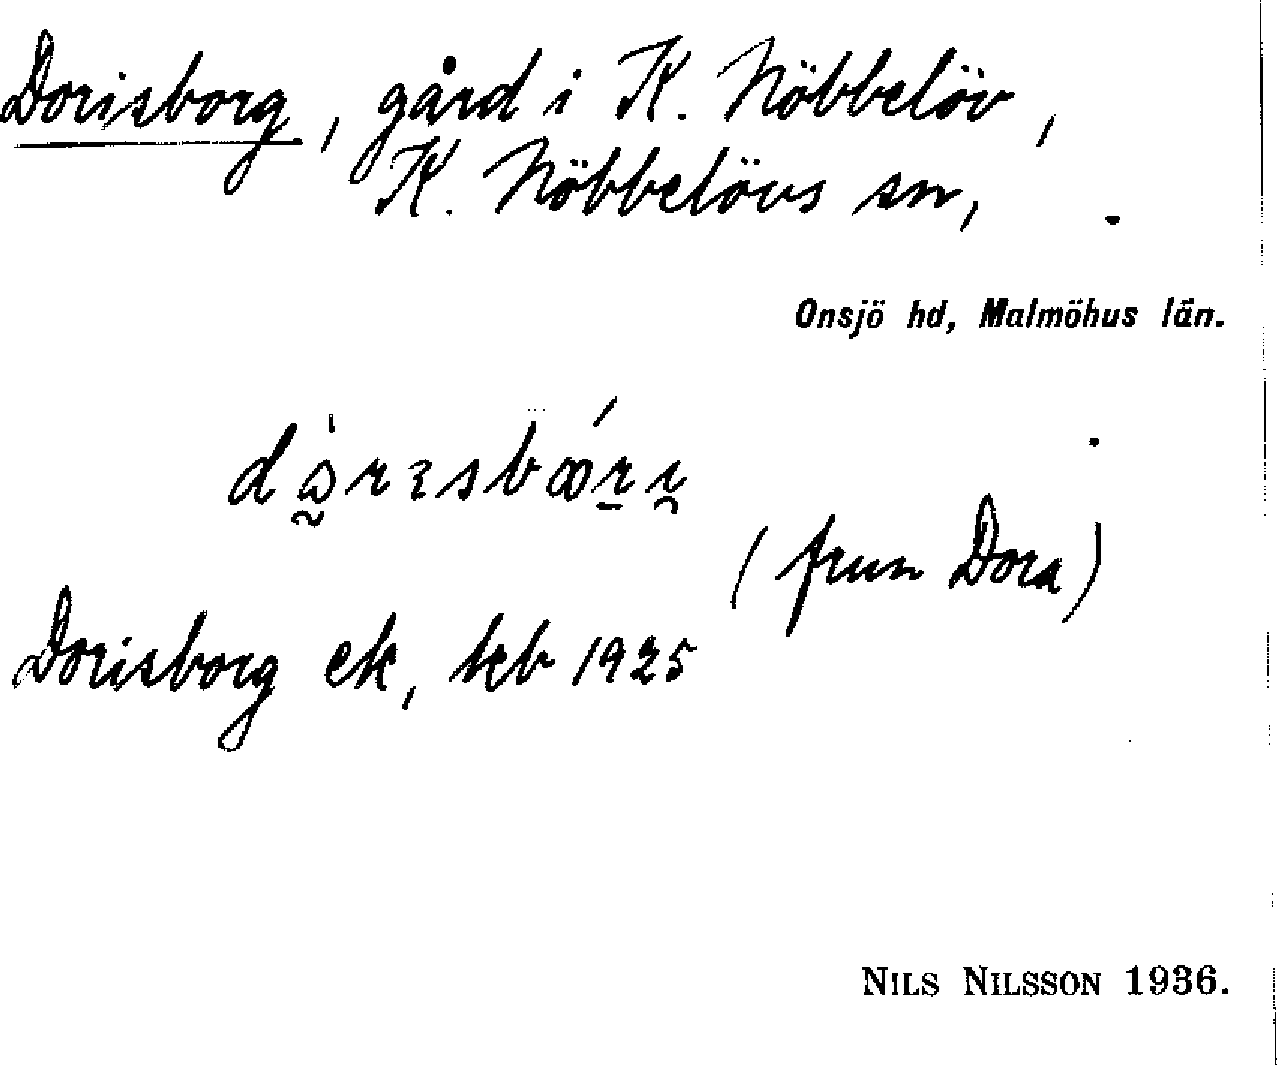 Dorisborg, gård i K. Nöbbelöv,
K. Nöbbelövs sn,
Onsjö hd, Malmöhus län.
(frun Dora)
Dorisborg ek, jeb 1925
NILS NILSSON 1936.